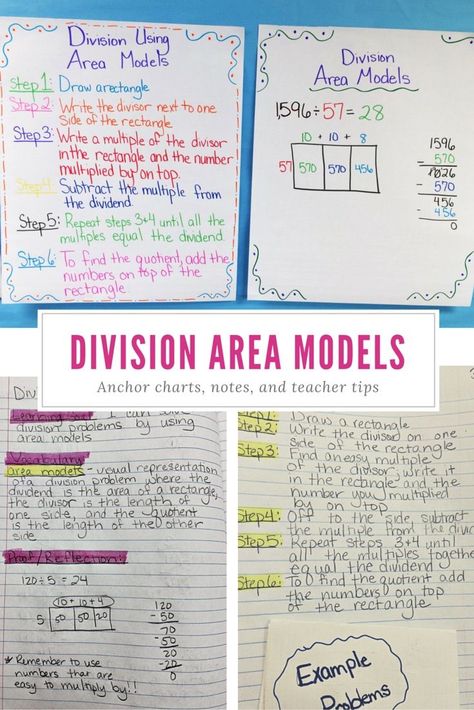 Division Using
Area Models
Step 1: Draw a rectangle
Step 2: Write the divisor next to one
side of the rectangle.
Step 3: Write a multiple of the divisor
in the rectangle and the number
multiplied by on top.
Step 4: Subtract the multiple from
the dividend.
Step 5: Repeat steps 3+4 until all the
multiples equal the dividend.
Step 6: To find the quotient, add the
numbers on top of the
rectangle.
Division
Area Models
1,596 ÷ 57 = 28
10 + 10 + 8
57 570 570 456
1596
- 570
1026
- 570
456
- 456
0
DIVISION AREA MODELS
Anchor charts, notes, and teacher tips
I can
division problems by using
area models
Vocabulary:
area models - visual representation
of a division problem where the
dividend is the area of a rectangle,
the divisor is the length of
one side, and the quotient
is the length of the other
side.
Proof/Reflection:
120 ÷ 5 = 24
10 + 10 + 4
5 50 50 20
120
- 50
70
- 50
20
- 20
0
* Remember to use
numbers that are
easy to multiply by!!
Step 1: Draw a rectangle
Step 2: Write the divisor on one
side of the rectangle
Step 3: Find an easy multiple
of the divisor, write it
in the rectangle and the
number you multiplied
by on top
Step 4: Off to the side, subtract
the multiple from the
Step 5: Repeat steps 3+4 until
all the multiples together
equal the dividend
Step 6: To find the quotient add
the numbers on top of
the rectangle
Example
Problems